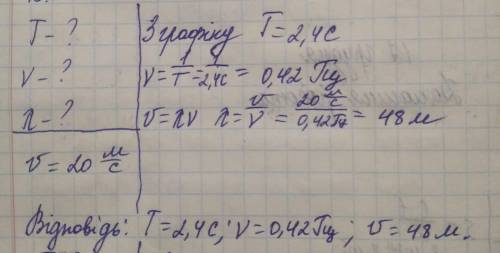 T - ?
ν - ?
λ - ?
v = 20 м/с
З графіку T = 2,4 с
ν = 1/T = 1/2,4с = 0,42 Гц
v = λν λ = v/ν = 20 м/с / 0,42 Гц = 48 м
Відповідь: T = 2,4 с; ν = 0,42 Гц; v = 48 м.